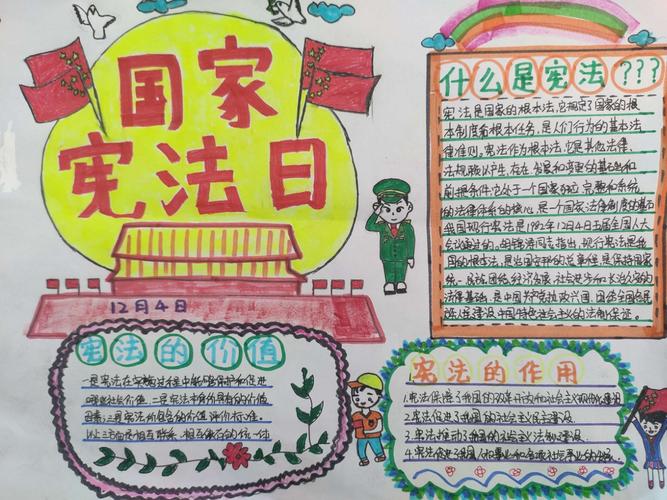 国家
宪法日
12月4日
什么是宪法???
宪法是国家的根本法,它规定了国家的根
本制度和根本任务,是人们行为的基本法
律准则。宪法作为根本法,它是其他法律、
法规赖以产生、存在、发展和变更的基础和
前提条件,它处于一个国家独立、完整和系统
的法律体系的核心,是一个国家法律制度的基石
我国现行宪法是1982年12月4日五届全国人大
会议通过的。胡锦涛同志指出,现行宪法是我
国的根本法,是治国安邦的总章程,是保持国家
统一、民族团结、经济发展、社会进步和长治久安的
法律基础,是中国共产党执政兴国、团结全国各
族人民建设中国特色社会主义的法制保证。
宪法的价值
一是宪法在实施过程中能够保护和促进
哪些社会价值,二是宪法本身所具有的价值
因素,三是宪法所包含的价值评价标准。
以上三方面是相互联系、相互依存的统一体
宪法的作用
1.宪法保障了我国的改革开放和社会主义现代化建设
2.宪法促进了我国的社会主义民主建设
3.宪法推动了我国的社会主义法制建设
4.宪法促进了我国人权事业和各项社会事业的发展